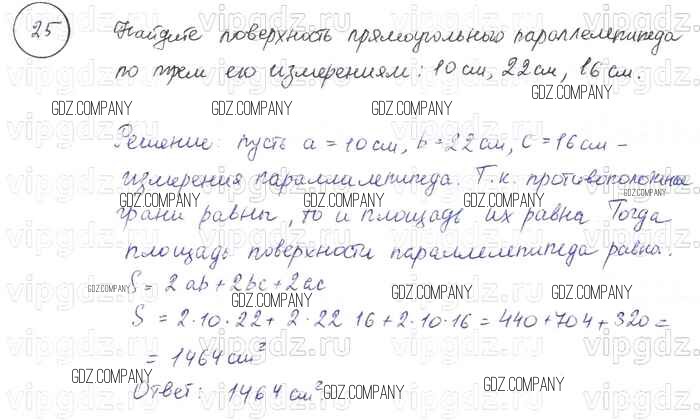 25 Найдите поверхность прямоугольного параллелепипеда
по трем его измерениям: 10 см, 22 см, 16 см.
GDZ.COMPANY GDZ.COMPANY GDZ.COMPANY GDZ.COMPANY
Решение: пусть a = 10 см, b = 22 см, c = 16 см –
измерения параллилепипеда. Т.к. противоположные
GDZ.COMPANY GDZ.COMPANY GDZ.COMPANY GDZ.COMPANY
грани равны, то и площадь их равна Тогда
площадь поверхности параллелепипеда равна:
S = 2ab + 2bc + 2ac
GDZ.COMPANY GDZ.COMPANY GDZ.COMPANY GDZ.COMPANY
S = 2·10·22 + 2·22 16 + 2·10·16 = 440 + 704 + 320 =
= 1464 см²
GDZ.COMPANY GDZ.COMPANY GDZ.COMPANY GDZ.COMPANY
Ответ: 1464 см²
vipgdz.ru vipgdz.ru vipgdz.ru vipgdz.ru